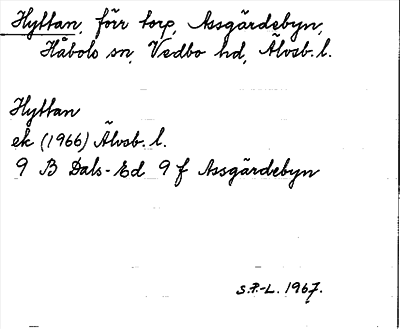 Hyttan, förr torp, Assgärdebyn,
Håbols sn, Vedbo hd, Älvsb. l.
Hyttan
ek (1966) Älvsb. l.
9 B Dals-Ed 9 f Assgärdebyn
S.F.-L. 1967.